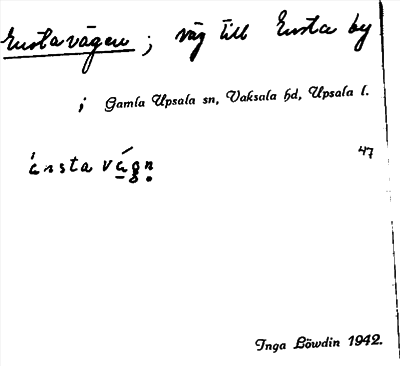 Enstavägen ; väg till Ensta by
; Gamla Upsala sn, Vaksala hd, Upsala l.
47
ánsta vágn
Inga Löwdin 1942.